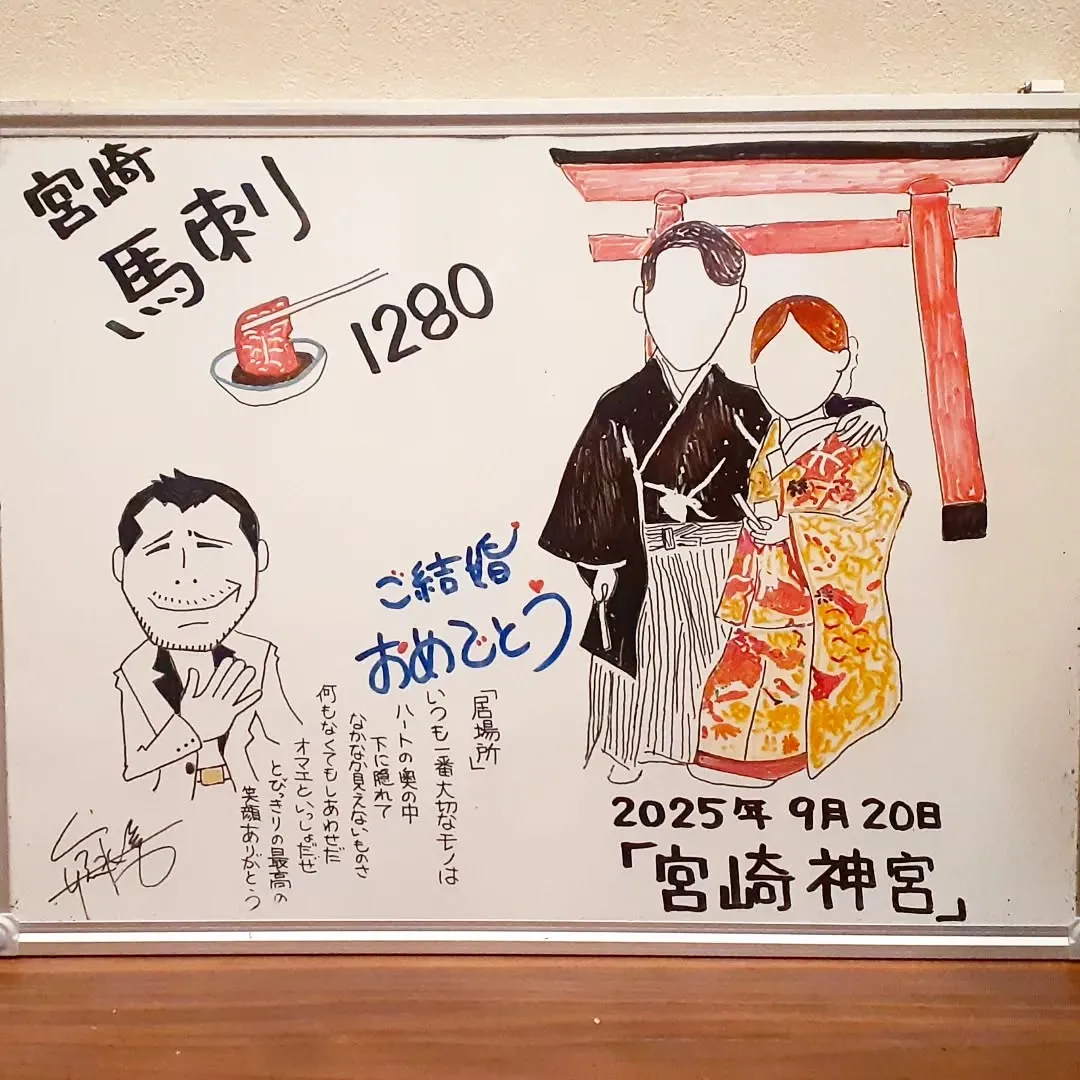 宮崎
馬刺し
1280
ご結婚
おめでとう
「居場所」
いつも一番大切なモノは
ハートの奥の中
下に隠れて
なかなか見えないものさ
何もなくてもしあわせだ
オマエといっしょだぜ
とびっきりの最高の
笑顔ありがとう
2025年 9月20日
「宮崎神宮」